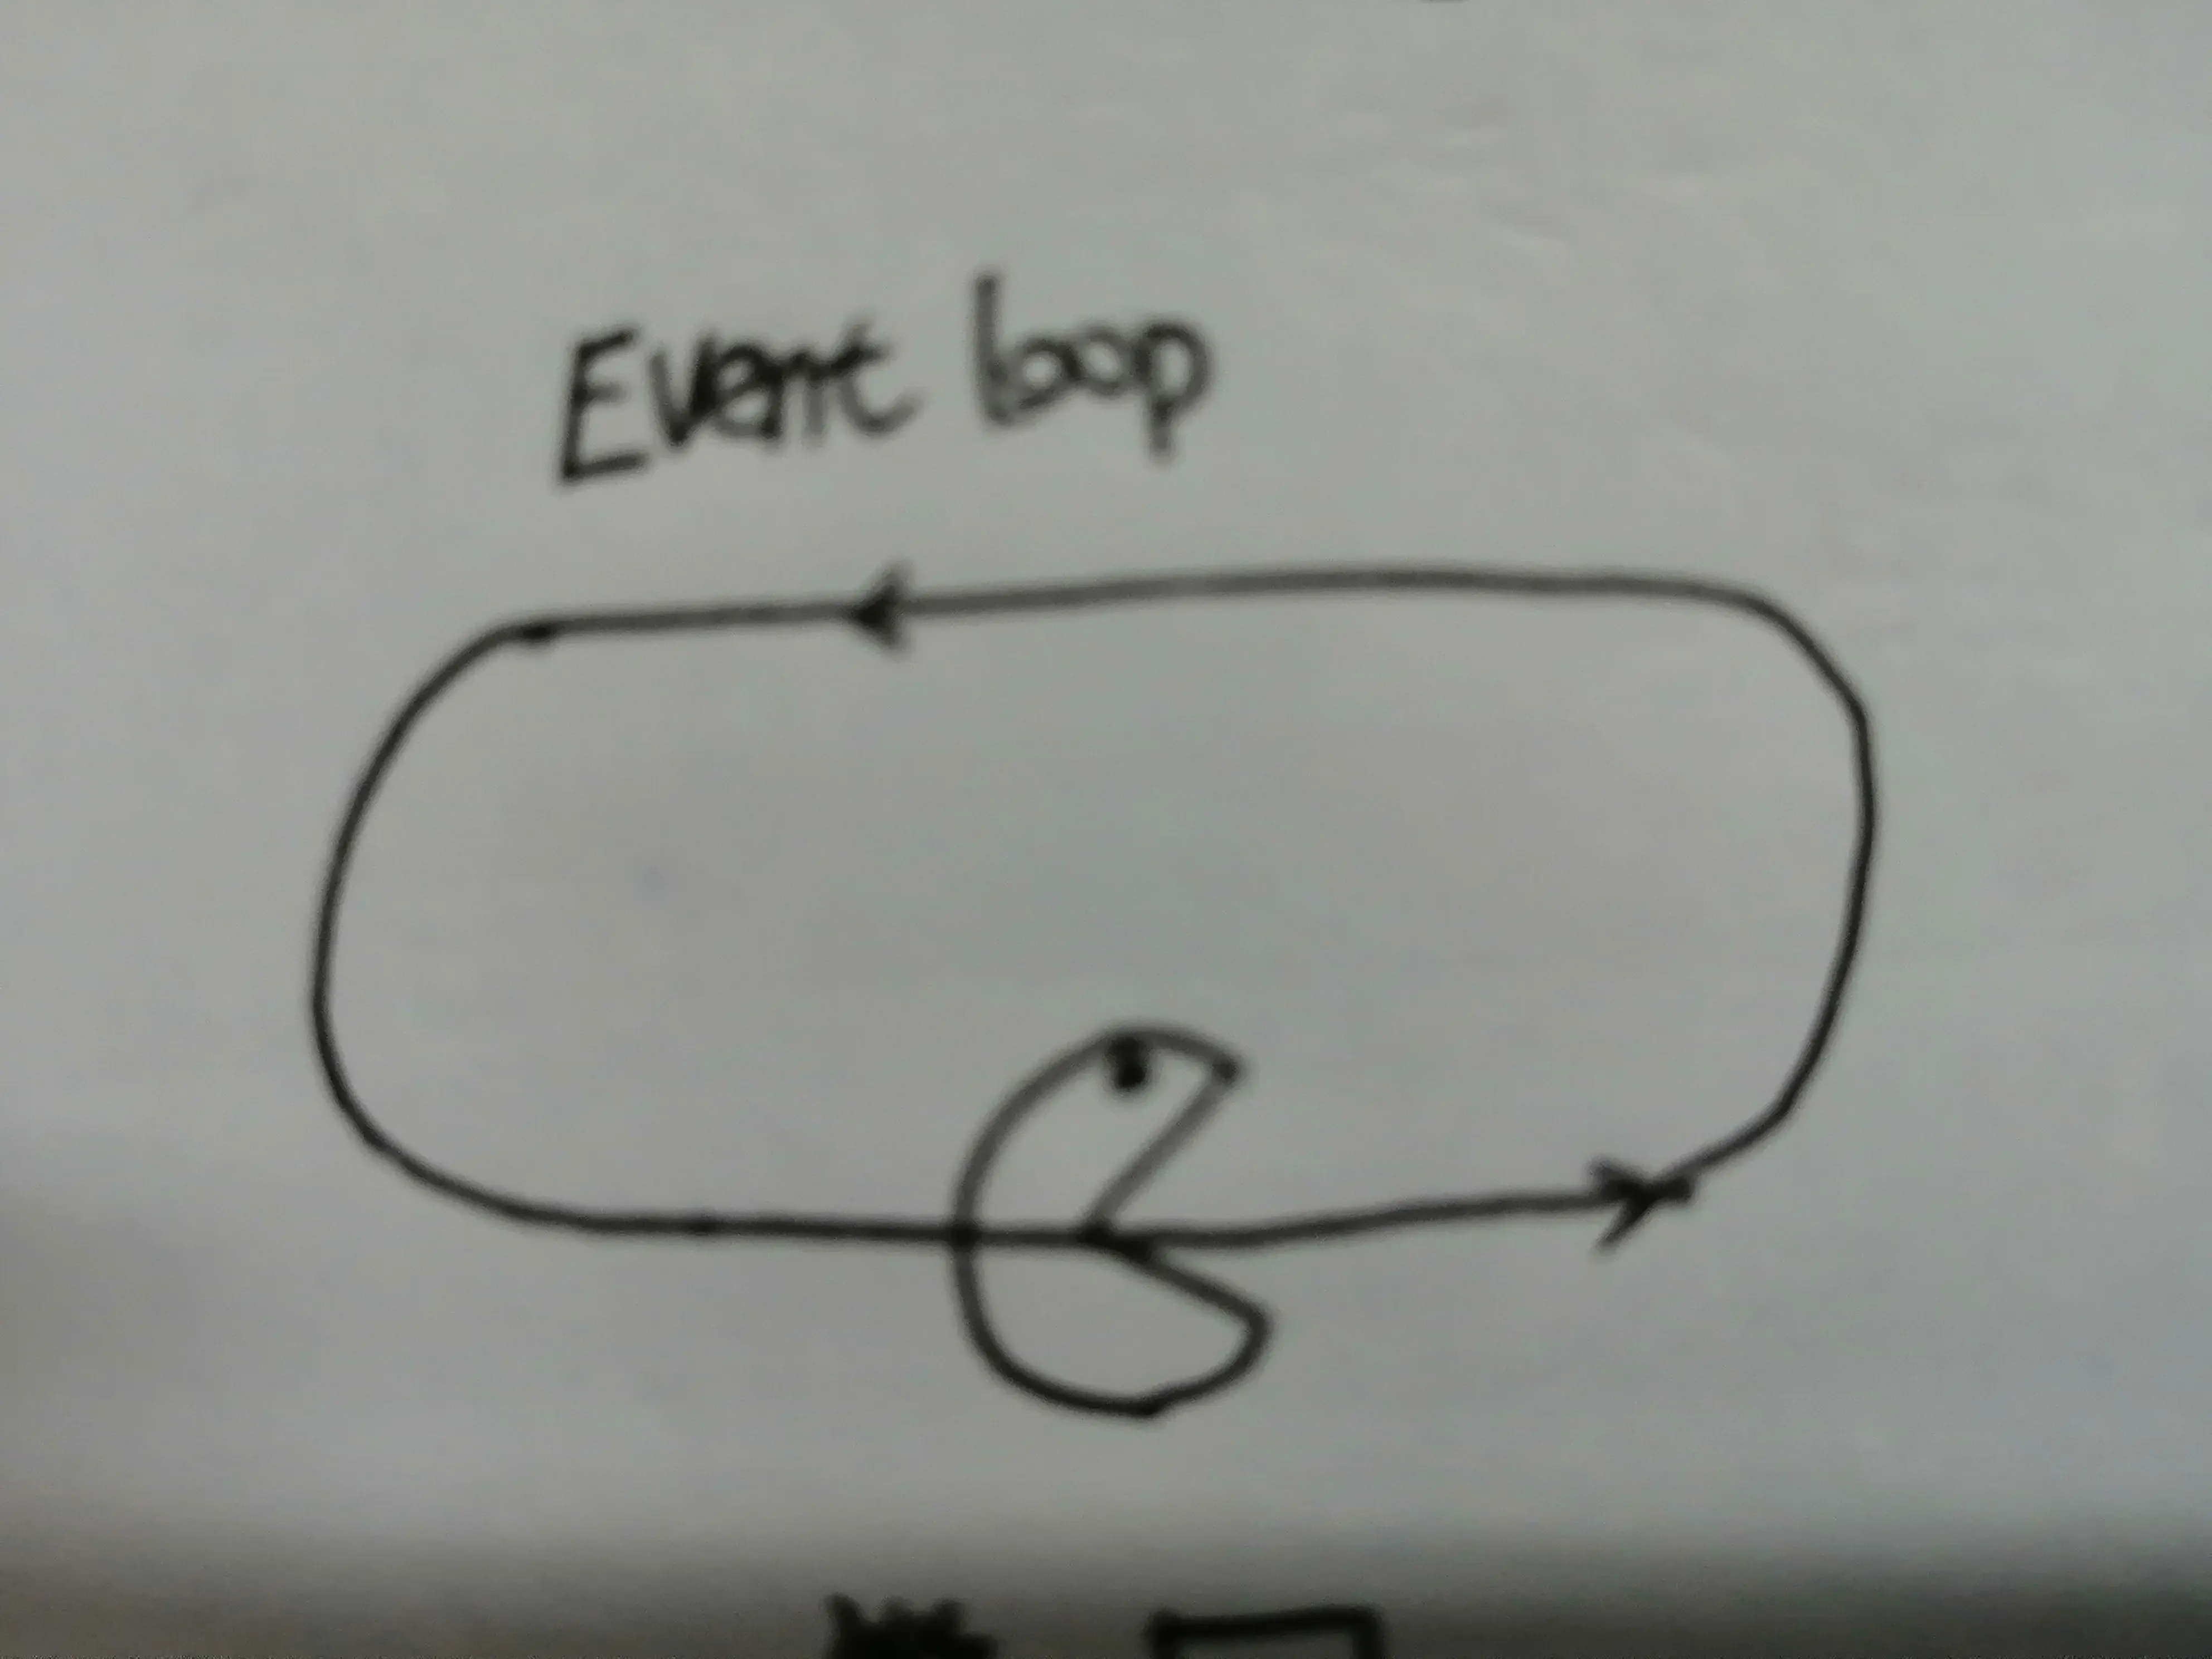 Event loop